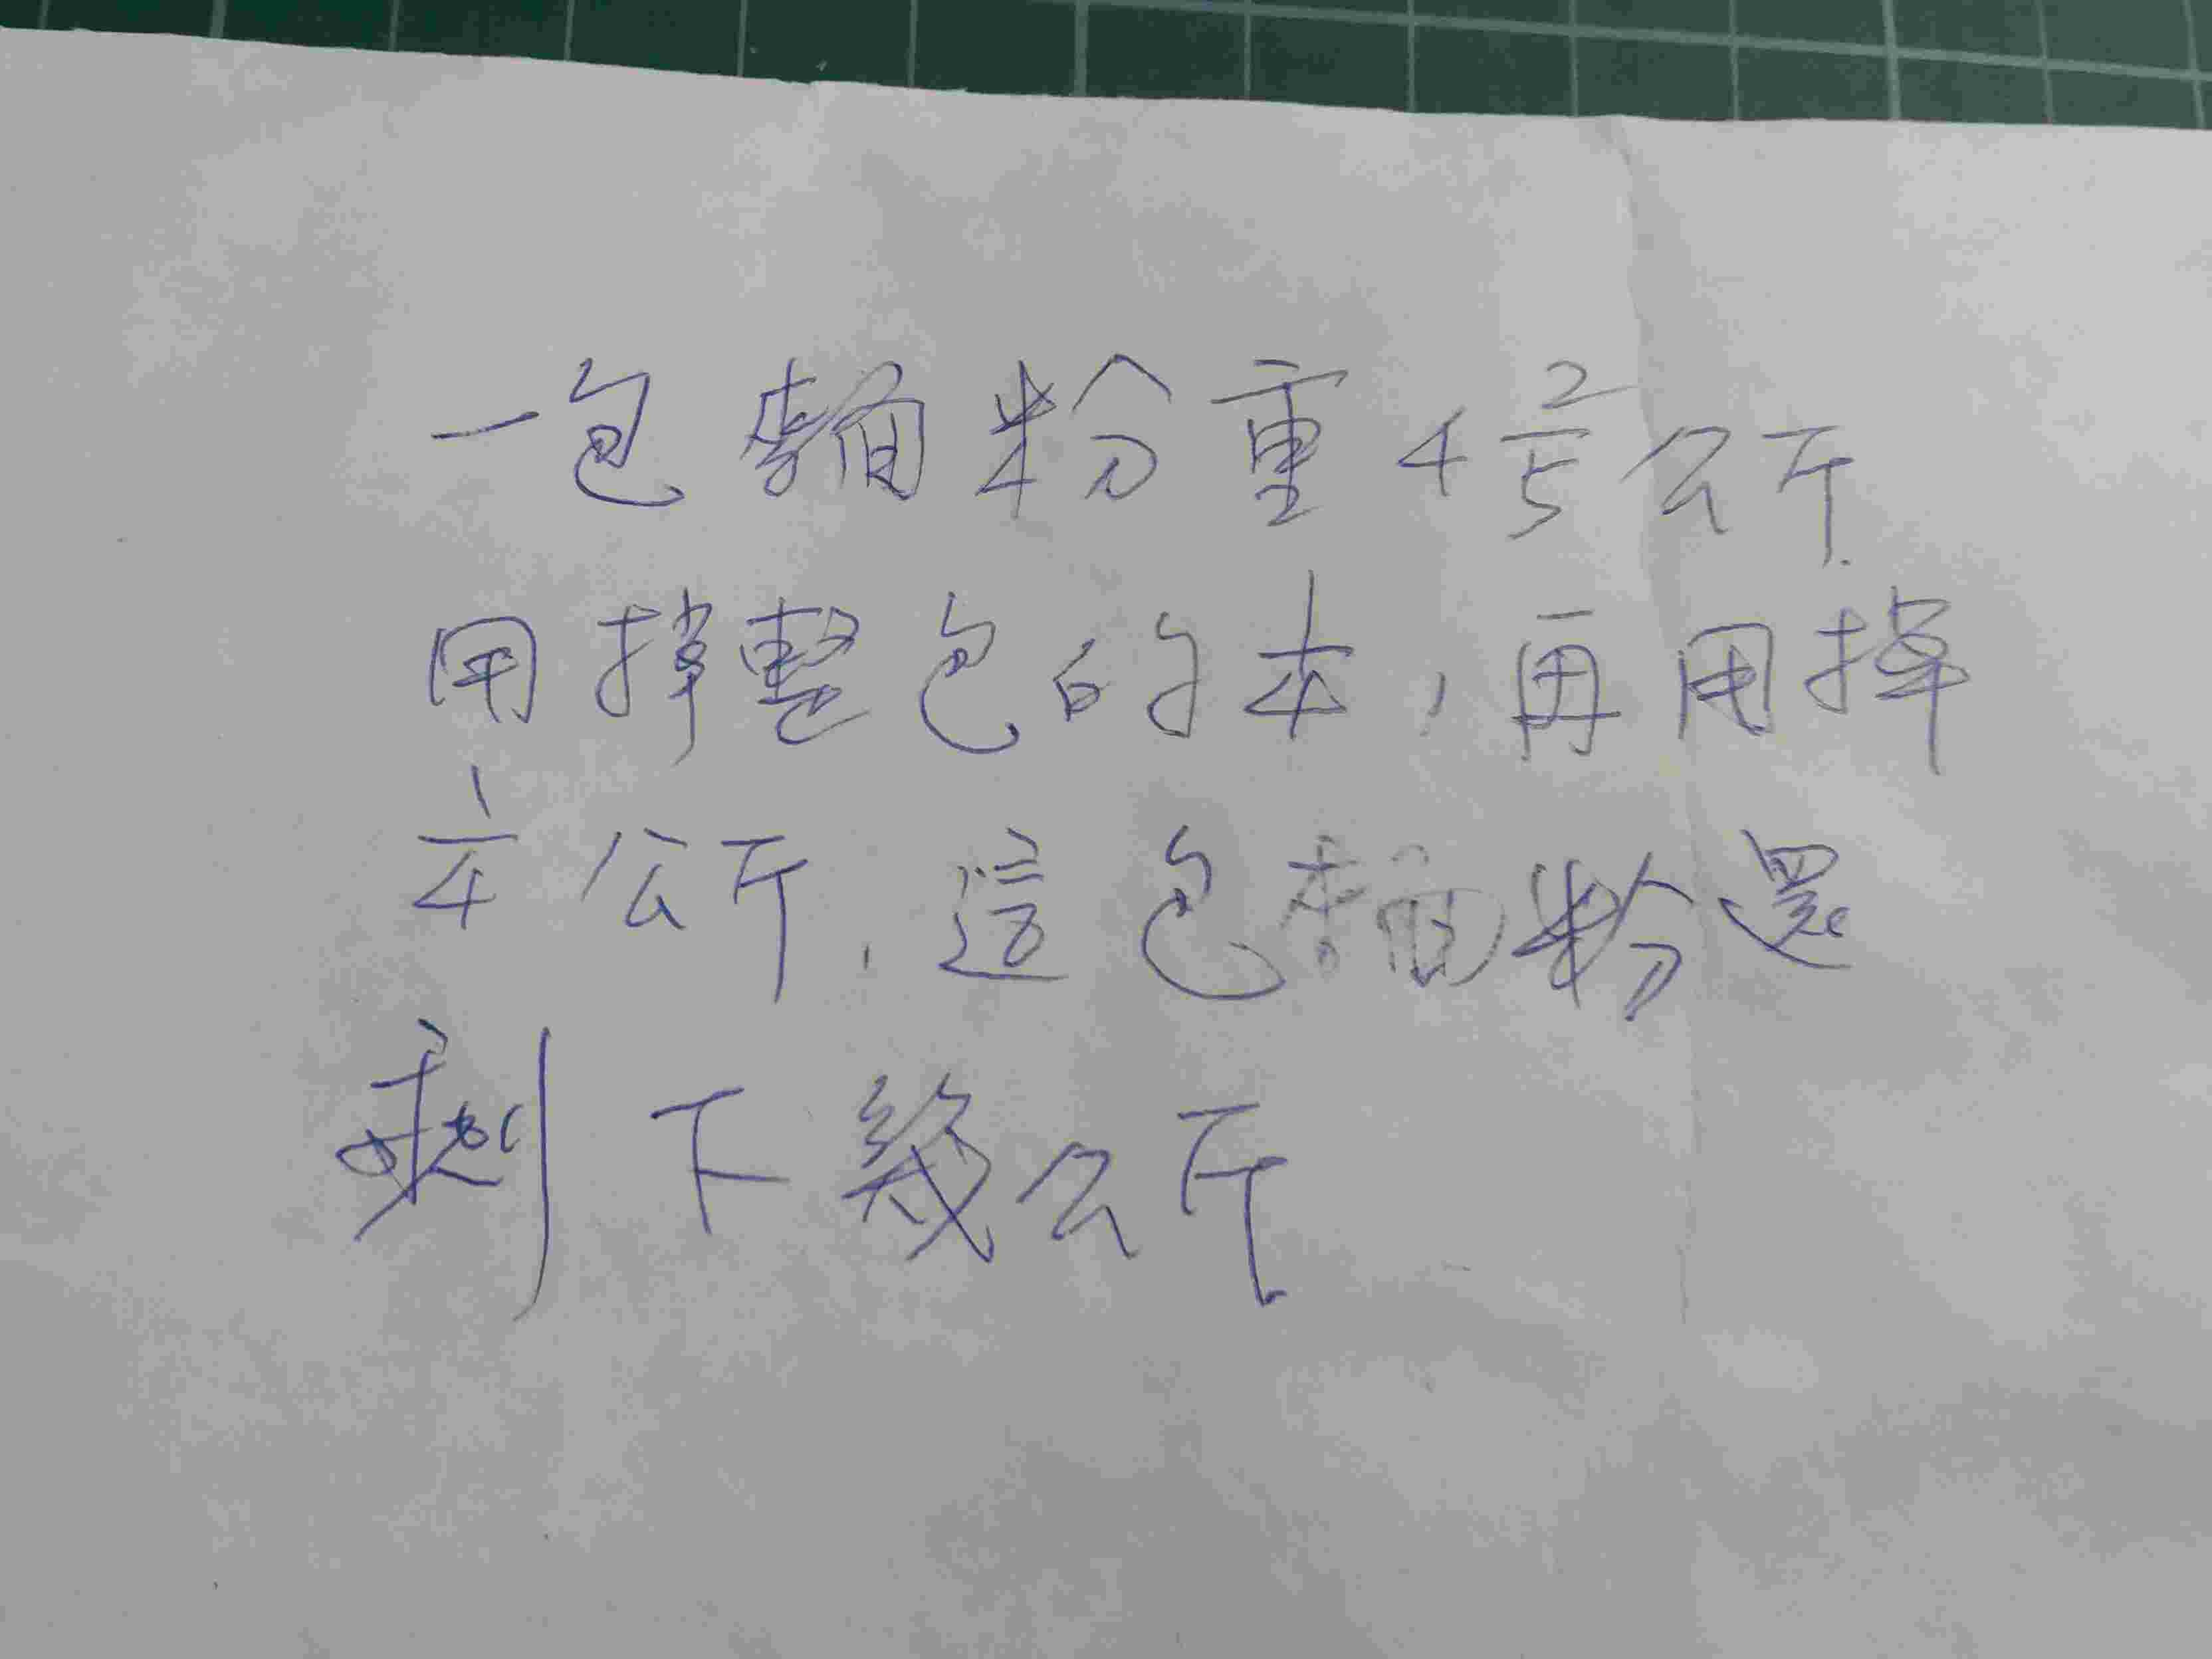 一包麵粉重4 2/5公斤
用掉整包的1/4,再用掉
1/4公斤,這包麵粉還
剩下幾公斤